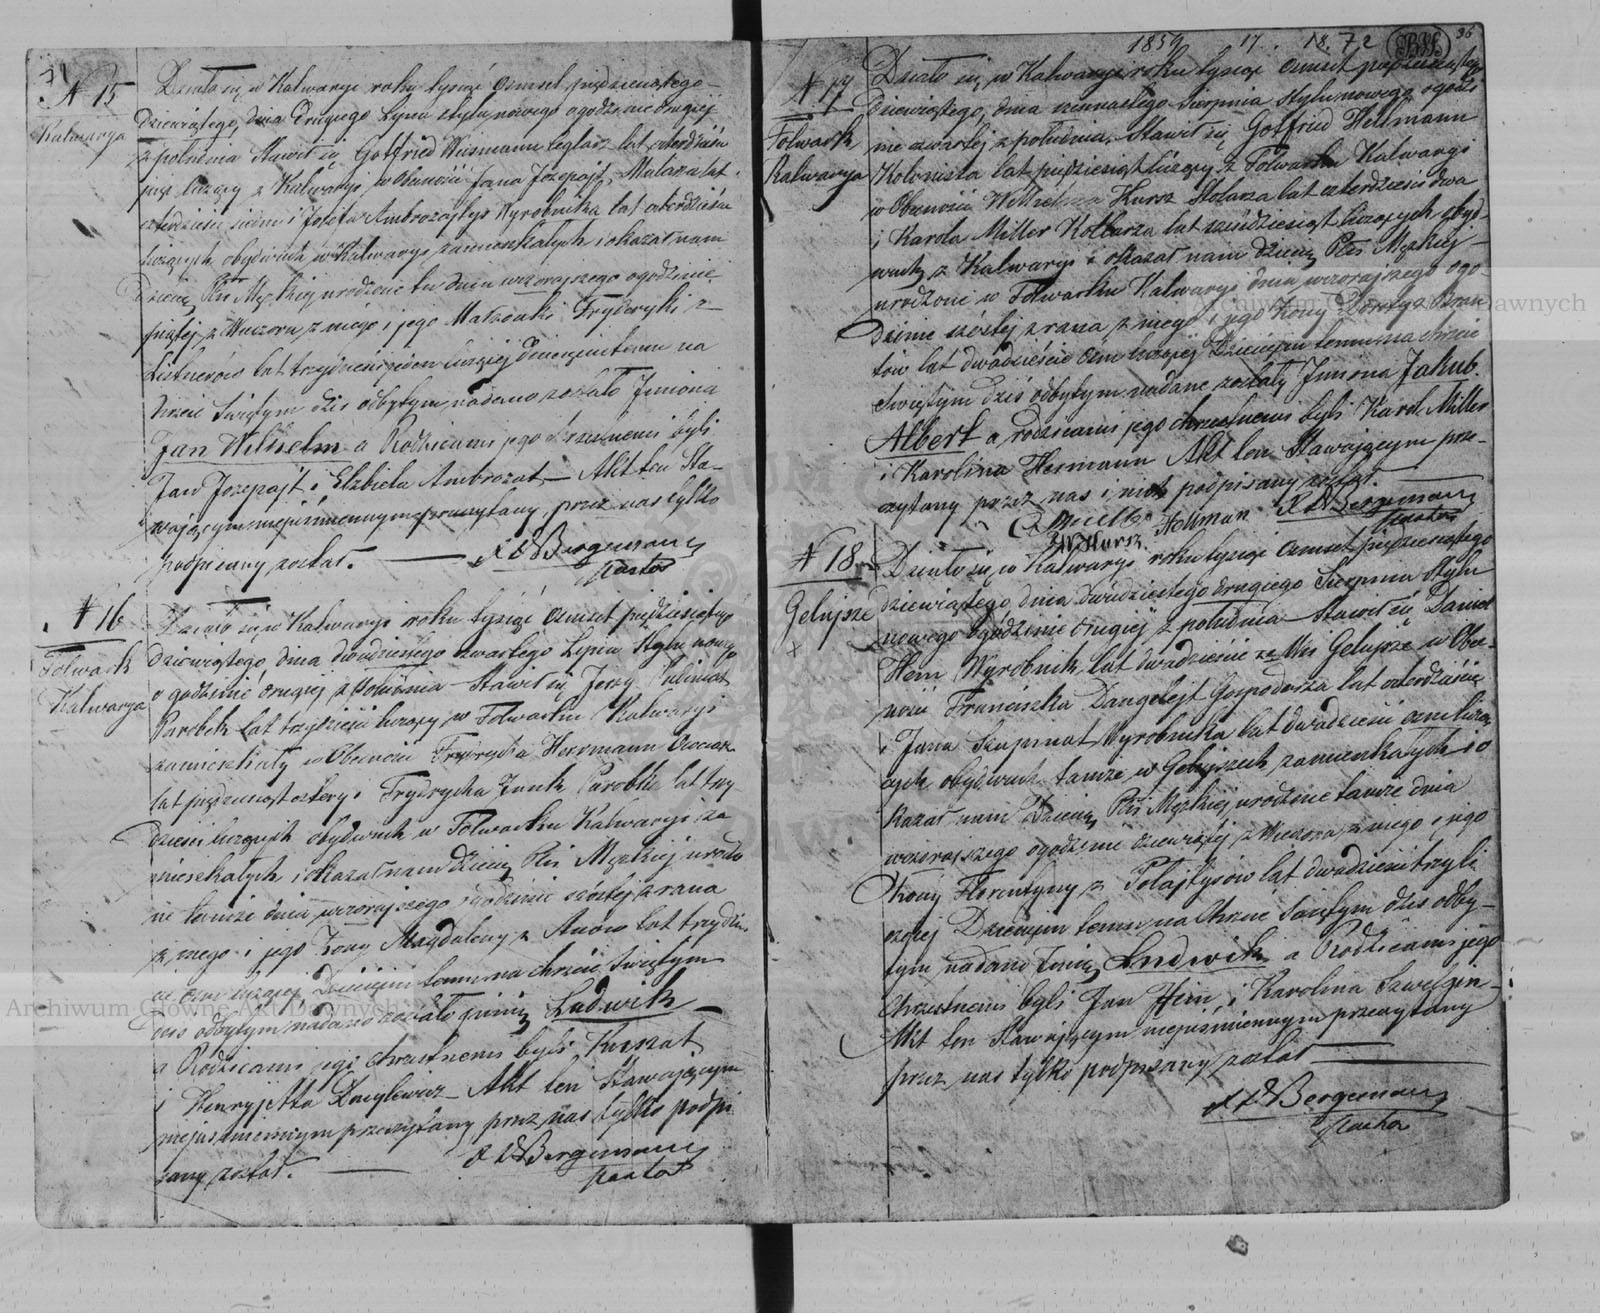 N 15
Kalwarya
Działo się w Kalwaryi roku tysiąc osmset pięćdziesiątego
dziewiątego, dnia drugiego Lipca stylu nowego o godzinie drugiej
z południa Stawił się Gottfried Wiesmann ceglarz lat czterdzieści
pięć liczący z Kalwaryi, w obecności Jana Jozepajt, Malarza lat
czterdzieści siedm i Jozefa Ambrozajtys Wyrobnika lat czterdzieści
liczących obydwóch w Kalwaryi zamieszkałych i okazał nam
Dziecię Płci Męzkiej urodzone tu dnia wczorajszego o godzinie
piątej z Wieczora z niego i jego Małżonki Fryderyki z
Listnerów lat trzydzieści jeden liczącej Dziecięciu temu na
Chrzcie Świętym dziś odbytym nadano zostało Imiona
Jan Wilhelm a Rodzicami jego Chrzestnemi byli
Jan Jozepajt i Elżbieta Ambrozat – Akt ten Sta-
wającym niepiśmiennym przeczytany, przez nas tylko
podpisany został.
Bergemann
Pastor
N 16
Folwark
Kalwarya
Działo się w Kalwaryi roku tysiąc osmset pięćdziesiątego
dziewiątego, dnia dwudziestego czwartego Lipca Stylu nowego
o godzinie drugiej z Południa Stawił się Jerzy Puliniat
Parobek lat trzydzieści liczący w Folwarku Kalwaryi
zamieszkały w Obecności Frydrycha Herrmann Owczarz
lat pięćdziesiąt cztery i Frydrycha Junk Parobka lat trzy
dzieści liczących obydwóch w Folwarku Kalwaryi za
mieszkałych i okazał nam dziecię Płci Męzkiej urodzo
ne tamże dnia wczorajszego o godzinie szóstej z rana
z niego i jego Żony Magdaleny z lat trzydzie
ci osm liczącej Dziecięciu temu na chrzcie Świętym
dziś odbytym nadano zostało Imię Ludwik
a Rodzicami jego chrzestnemi byli Kurszat
i Henryjetta Danylewicz – Akt ten Stawającym
niepiśmiennym przeczytany przez nas tylko podpi
sany został.
Bergemann
Pastor
1859 17. 18. 72 36
N 17
Folwark
Kalwarya
Działo się w Kalwaryi roku tysiąc osmset pięćdziesiątego
dziewiątego, dnia Sierpnia Stylu nowego o godzi
nie czwartej z południa. Stawił się Gottfried Hellmann
Kolonista lat pięćdziesiąt liczący z Folwarku Kalwaryi
w Obecności Wilhelma Kursz Stolarza lat czterdzieści dwa
i Karola Miller Kotlarza lat sześćdziesiąt liczących obyd-
wuch z Kalwaryi i okazał nam dziecię Płci Męzkiej
urodzone w Folwarku Kalwaryi dnia wczorajszego o go-
dzinie szóstej z rana z niego i jego Żony Doroty z Bran
tów lat dwadzieścia osm liczącej Dziecięciu temu na chrzcie
Świętym dziś odbytym nadane zostały Imiona Jakub
Albert a rodzicami jego chrzestnemi byli Karol Miller
i Karolina Hermann Akt ten Stawającym prze-
czytany przez nas i nich podpisany został.
Hellman
Kursz
Bergemann
Pastor
N 18
Gelujsze
x
Działo się w Kalwaryi roku tysiąc osmset pięćdziesiątego
dziewiątego, dnia dwudziestego drugiego Sierpnia Stylu
nowego o godzinie drugiej z południa Stawił się Daniel
Hein Wyrobnik lat dwadzieścia ze Wsi Gelujsze w Obe-
ności Franciszka Dangelejt Gospodarza lat czterdzieści
i Jana Szupinat Wyrobnika lat dwadzieścia osm licz
cych obydwóch tamże w Gelujszach zamieszkałych i o
kazał nam Dziecię Płci Męzkiej urodzone tamże dnia
wczorajszego o godzinie dziewiątej z Wieczora z niego i jego
Żony Florentyny z Polajtysów lat dwadzieścia trzy li
czącej Dziecięciu temu na Chrzcie Świętym dziś odby-
tym nadano Imię Ludwik a Rodzicami jego
Chrzestnemi byli Jan Hein i Karolina Szwelgin
Akt ten Stawającym niepiśmiennym przeczytany
przez nas tylko podpisany został
Bergemann
Pastor
Archiwum Główne Akt Dawnych
Archiwum Główne Akt Dawnych